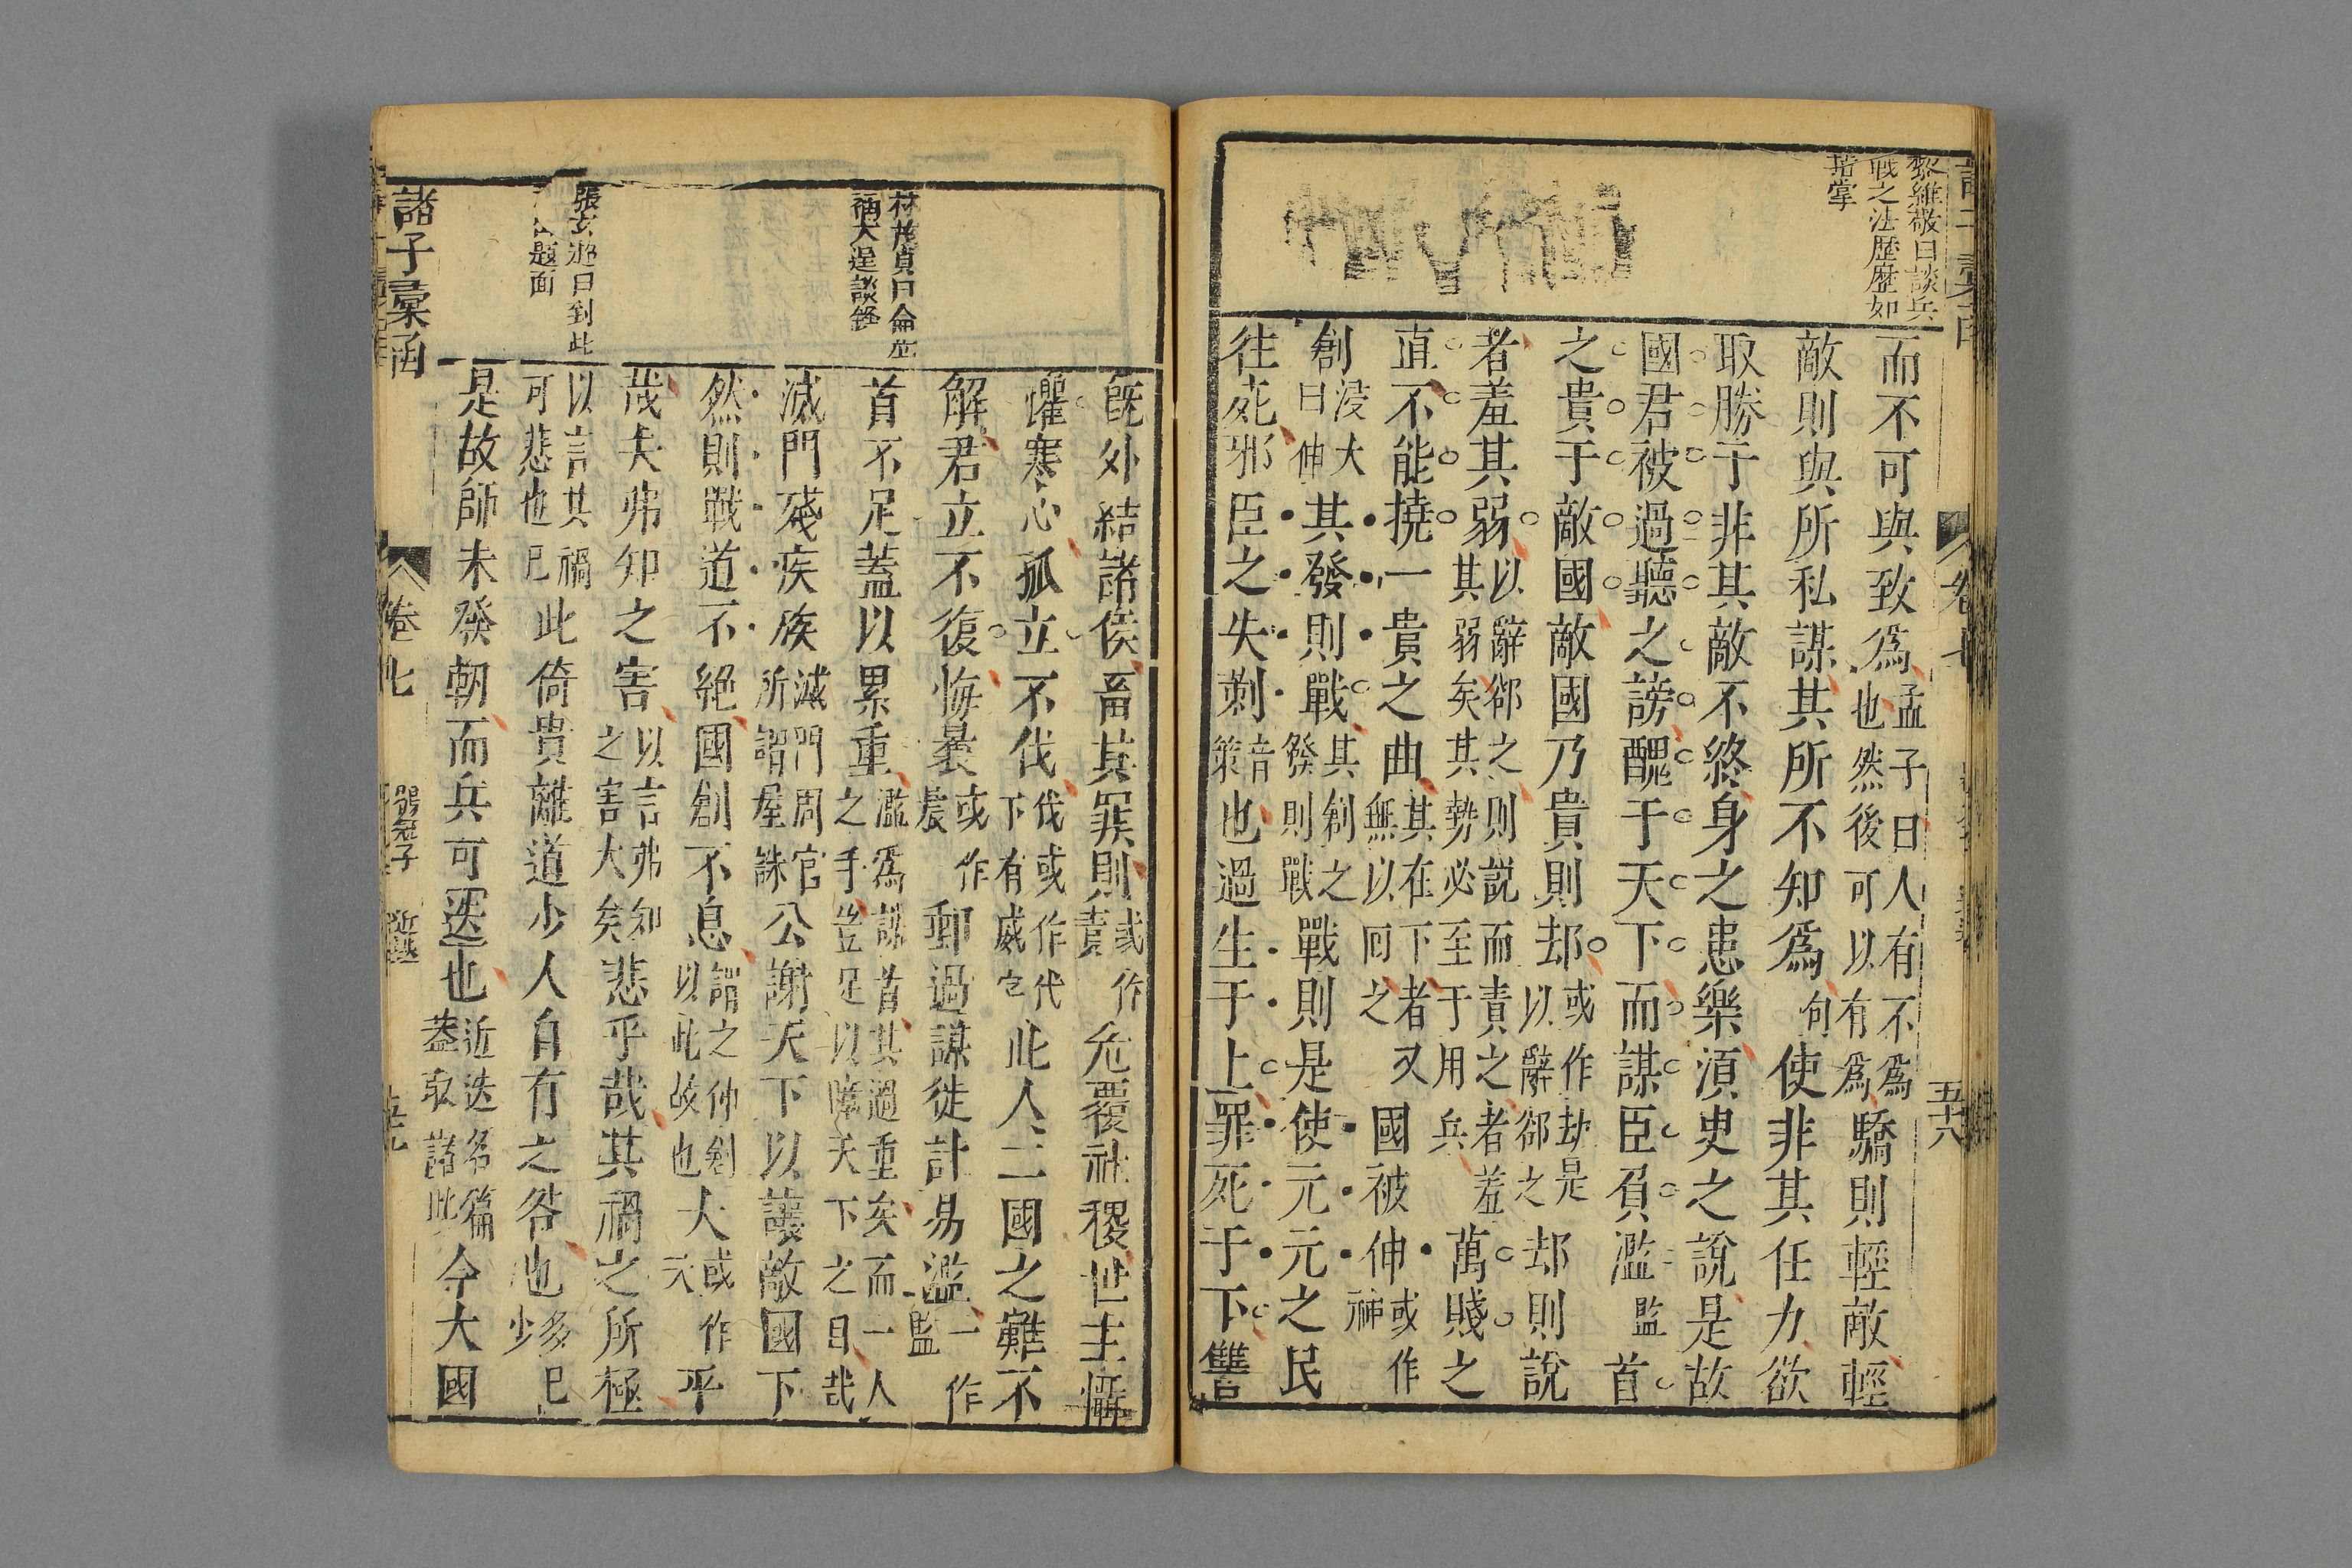 黎維敬曰談兵
戰之法歷歷如
指掌
而不可與致爲孟子曰人有不爲也然後可以有爲驕則輕敵輕
敵則與所私謀其所不知爲句使非其任力欲
取勝于非其敵不終身之患樂湏史之說是故
國君被過聽之謗醜于天下而謀臣負濫監首
之貴于敵國敵國乃貴則却或作劫是以辭郤之却則說
者羞其弱以辭郤之則說而責之者羞其弱矣其勢必至于用兵萬賤之
直不能撓一貴之曲其在下者無以囘之又國被伸或作神
創浸大曰伸其發則戰其創之發則戰戰則是使元元之民
往死邪臣之失剌音策也過生于上罪死于下讐
林茂貞曰侖並
張玄
題面
旣外結諸侯畜其罪則或作責危覆社稷世主懾
懼寒心孤立不伐伐或作代下有威乞此人二國之難不
解君立不復悔曩或作農郵過謀徙計易濫一作監
首不足蓋以累重濫爲謀首其過重矣而一人之手豈足以障天下之目哉
滅門殘疾族滅門周官所謂屋誅公謝天下以讓敵國下
然則戰道不絕國創不息謂之伸創以此故也大或作天乎
哉夫弗知之害以言弗知之害大矣悲乎哉其禍之所極
以言其禍可悲也已此倚貴離道少人自有之咎也多已少
是故師未發朝而兵可迭也近迭名篇葢取諸此今大國
諸子彙函
卷七
鶡冠子
近迭
五十八